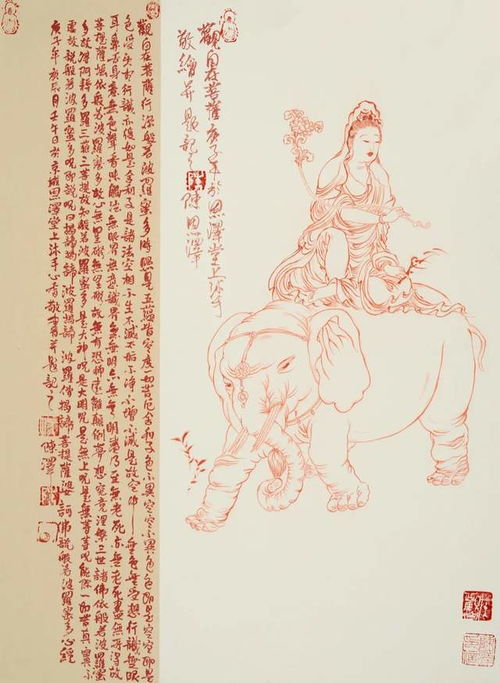 觀自在菩薩庚子年於恩澤堂上沐手
敬繪并題記之
觀自在菩薩行深般若波羅蜜多時照見五蘊皆空度一切苦厄舍利子色不異空空不異色色即是空空即是
色受想行識亦復如是舍利子是諸法空相不生不滅不垢不淨不增不減是故空中無色無受想行識無眼
耳鼻舌身意無色聲香味觸法無眼界無意識界無無明亦無無明盡乃至無老死亦無老死盡無所得故
菩提薩埵依般若波羅蜜多故心無罣礙無罣礙故無有恐怖遠離顛倒夢想究竟涅槃三世諸佛依般若波羅蜜
多故得阿耨多羅三藐三菩提故知般若波羅蜜多是大神咒是大明咒是無上咒是無等等咒能除一切苦真實不
虛故說般若波羅蜜多咒即說咒曰揭諦揭諦波羅揭諦波羅僧揭諦菩提薩婆訶佛說般若波羅蜜多心經
庚子年亥月壬午日於京城恩澤堂上沐手敬書并題記之